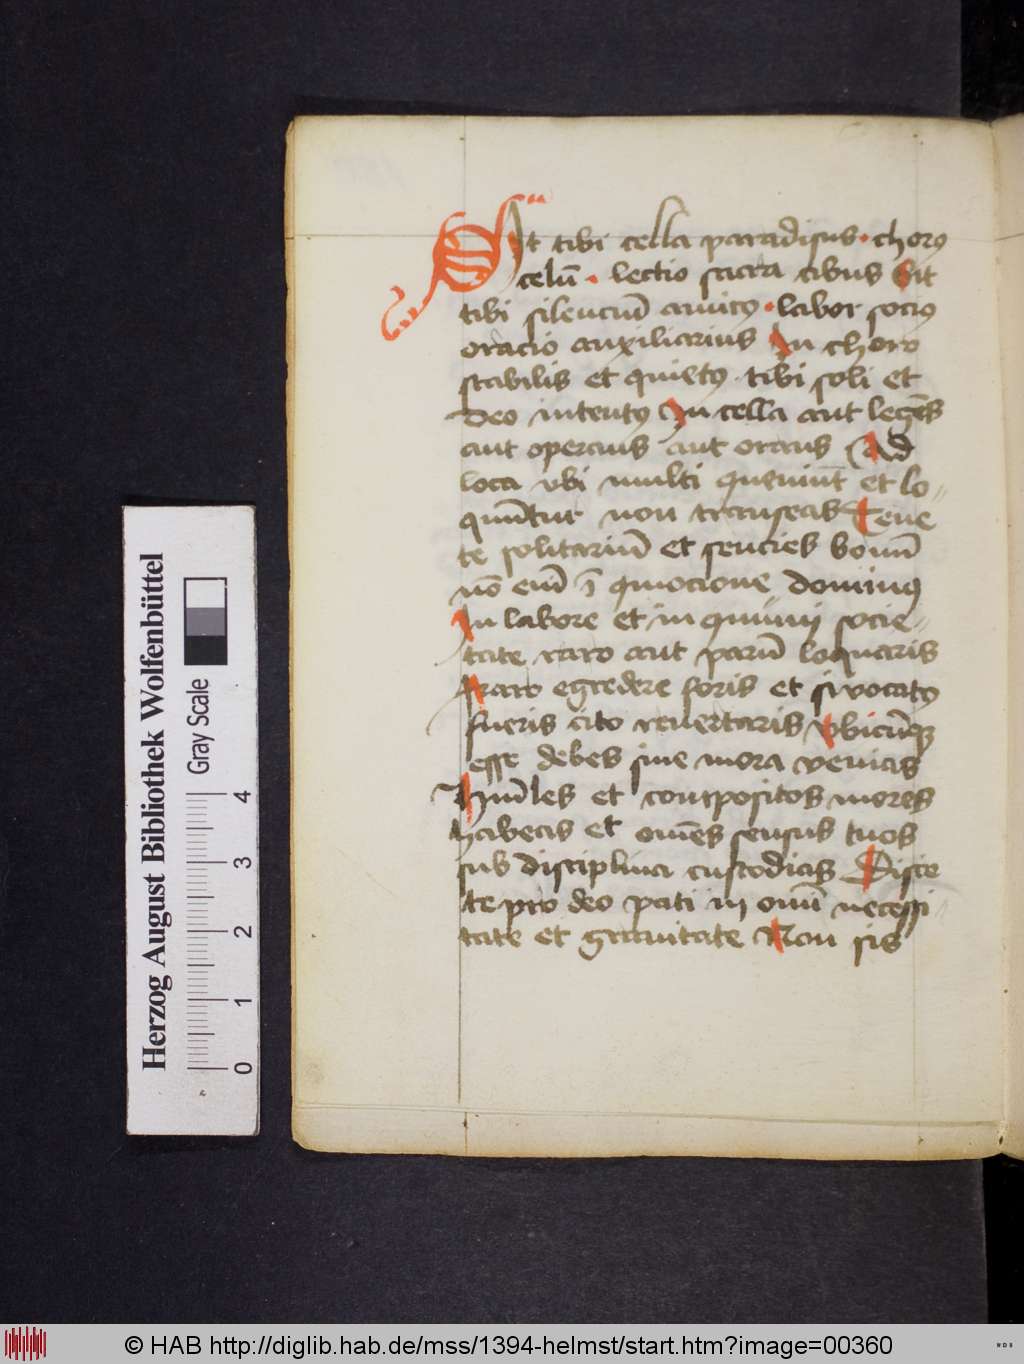 Sit tibi cella paradisus · chorꝯ
celū · lectio sacra cibus Sit
tibi silenciū amicꝯ · labor sociꝯ
oracio auxiliarius In choro
stabilis et quietꝯ · tibi soli et
deo intentꝯ In cella aut legēs
aut operans aut orans Ad
loca vbi multi ꝯueniūt et lo〃
quūtur non transeas Tene
te solitariū et sencies bonū
nō eīm ī ꝯmocione dominꝯ
In labore et in ꝯuiuij socie〃
tate raro aut parū loquaris
Raro egredere foris et si vocatꝯ
fueris cito reuertaris Vbicūqꝫ
esse debes sine mora venias
Humīles et compositos mores
habeas et om̄es sensus tuos
sub disciplina custodias Disce
te pro deo pati in om̄i necessi〃
tate et grauitate Non sis
Herzog August Bibliothek Wolfenbüttel
Gray Scale
0 1 2 3 4
© HAB http://diglib.hab.de/mss/1394-helmst/start.htm?image=00360